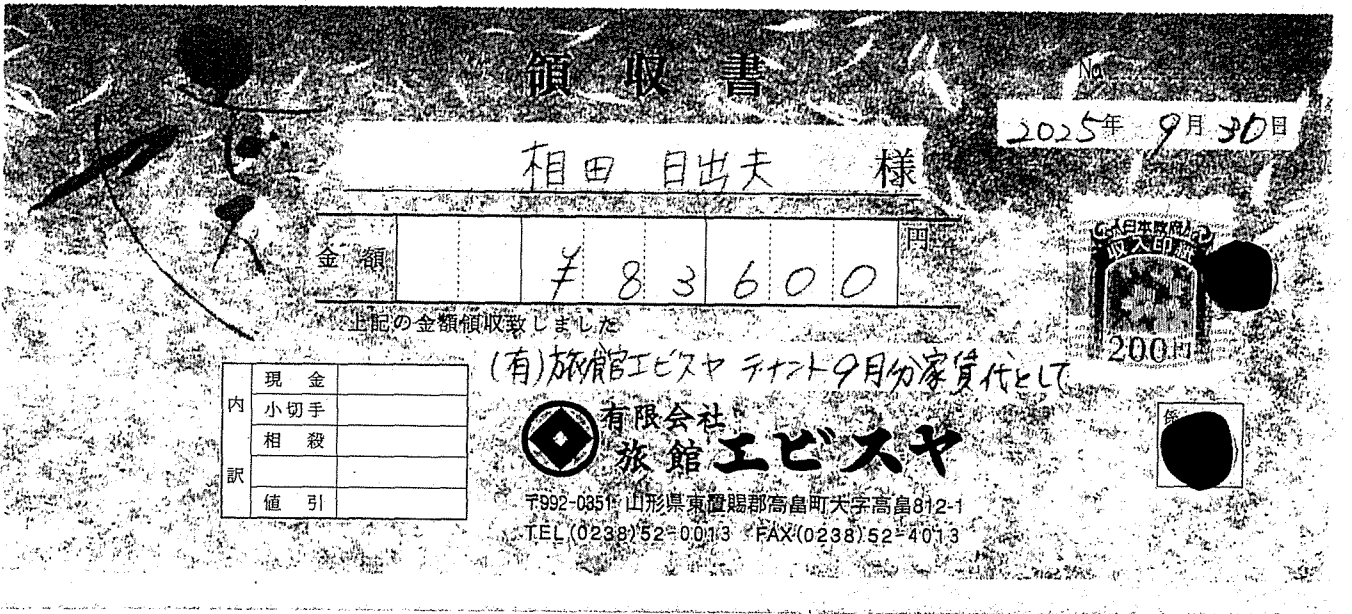 領収書
No.
2025年 9月 30日
相田 日出夫 様
金額 ¥83600 円
上記の金額領収致しました
(有)旅館エビスヤ テナント9月分家賃代として
日本政府
収入印紙
200円
内訳
現金
小切手
相殺
値引
有限会社
旅館 エビスヤ
〒992-0351 山形県東置賜郡高畠町大字高畠812-1
TEL(0238)52-0013 FAX(0238)52-4013
係